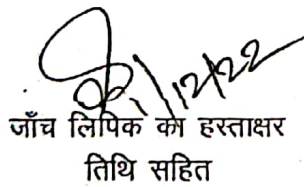 1/12/22
जाँच लिपिक का हस्ताक्षर
तिथि सहित